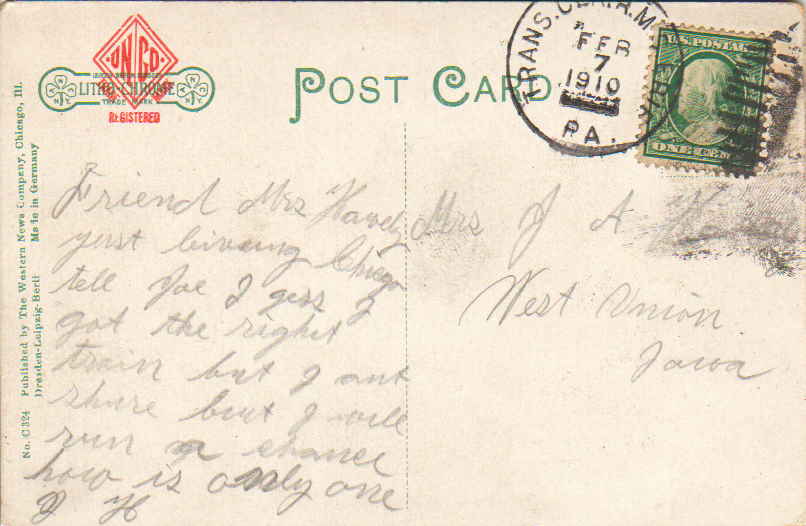 UNCO.
LITHO-CHROME
TRADE MARK
REGISTERED
POST CARD
TRANS. CLK. R.M.
FEB
7
1910
PA.
U.S. POSTAGE
ONE CENT
No. C 324 Published by The Western News Company, Chicago, Ill.
Dresden-Leipzig-Berli Made in Germany
Friend Mrs
just living
tell Joe I gess I
got the right
train but I ant
shure but I will
run a chance
how is only one
J H
Mrs J A
West Union
Iowa